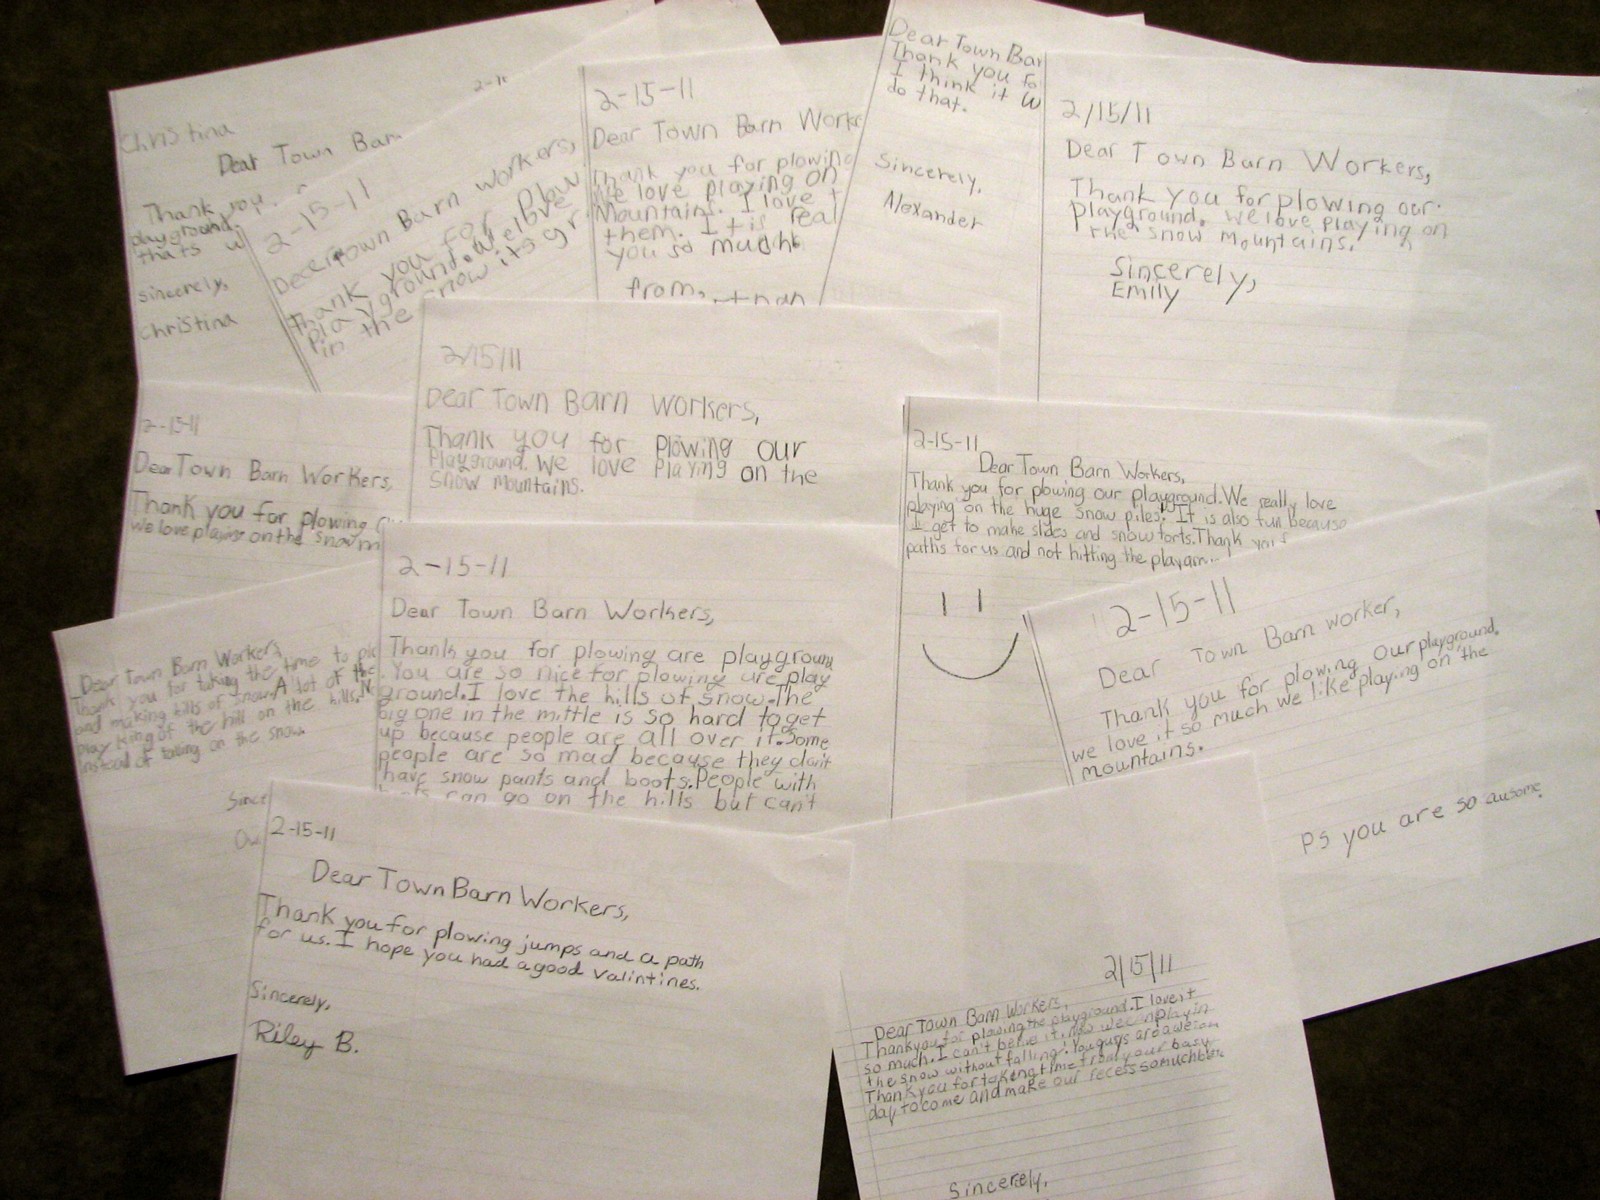 Christina
2-1
Dear Town Barn
Thank you
playground.
thats w
sincerely,
Christina
2-15-11
Dear Town Barn Workers,
Thank you for plow
playground. We love
in the snow its gr
2-15-11
Dear Town Barn Worke
Thank you for plowing
We love playing on
Mountains. I love t
them. It is real
you so much
from,
Dear Town Bar
Thank you fo
I think it w
do that.
Sincerely,
Alexander
2/15/11
Dear Town Barn Workers,
Thank you for plowing our
playground. we love playing on
the snow mountains.
Sincerely,
Emily
2-15-11
Dear Town Barn Workers,
Thank you for plowing
We love playing on the snow m
2/15/11
Dear Town Barn Workers,
Thank you for Plowing our
Playground. We love Playing on the
Snow Mountains.
2-15-11
Dear Town Barn Workers,
Thank you for plowing our playground. We really love
playing on the huge snow piles. It is also fun because
I get to make slides and snow forts. Thank you f
paths for us and not hitting the playgr
Dear Town Barn Workers,
Thank you for taking the time to plo
and making hills of snow. A lot of the
play king of the hill on the hills. N
instead of falling on the snow.
Since
2-15-11
Dear Town Barn Workers,
Thank you for plowing are playground
. You are so nice for plowing are play
ground. I love the hills of snow. The
big one in the mittle is so hard to get
up because people are all over it. Some
people are so mad because they don't
have snow pants and boots. People with
can go on the hills but can't
2-15-11
Dear Town Barn worker,
Thank you for plowing our playground.
we love it so much we like playing on the
mountains.
PS you are so ausome.
2-15-11
Dear Town Barn Workers,
Thank you for plowing jumps and a path
for us. I hope you had a good valintines.
Sincerely,
Riley B.
2/15/11
Dear Town Barn Workers,
Thank you for plowing the playground. I love it
so much. I can't belive it. Now we can play in
the snow without falling! You guys are awesom
Thank you for taking time from your busy
day to come and make our recess so much better
Sincerely,